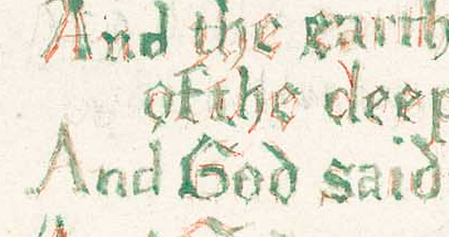 And the earth
of the deep
And God said